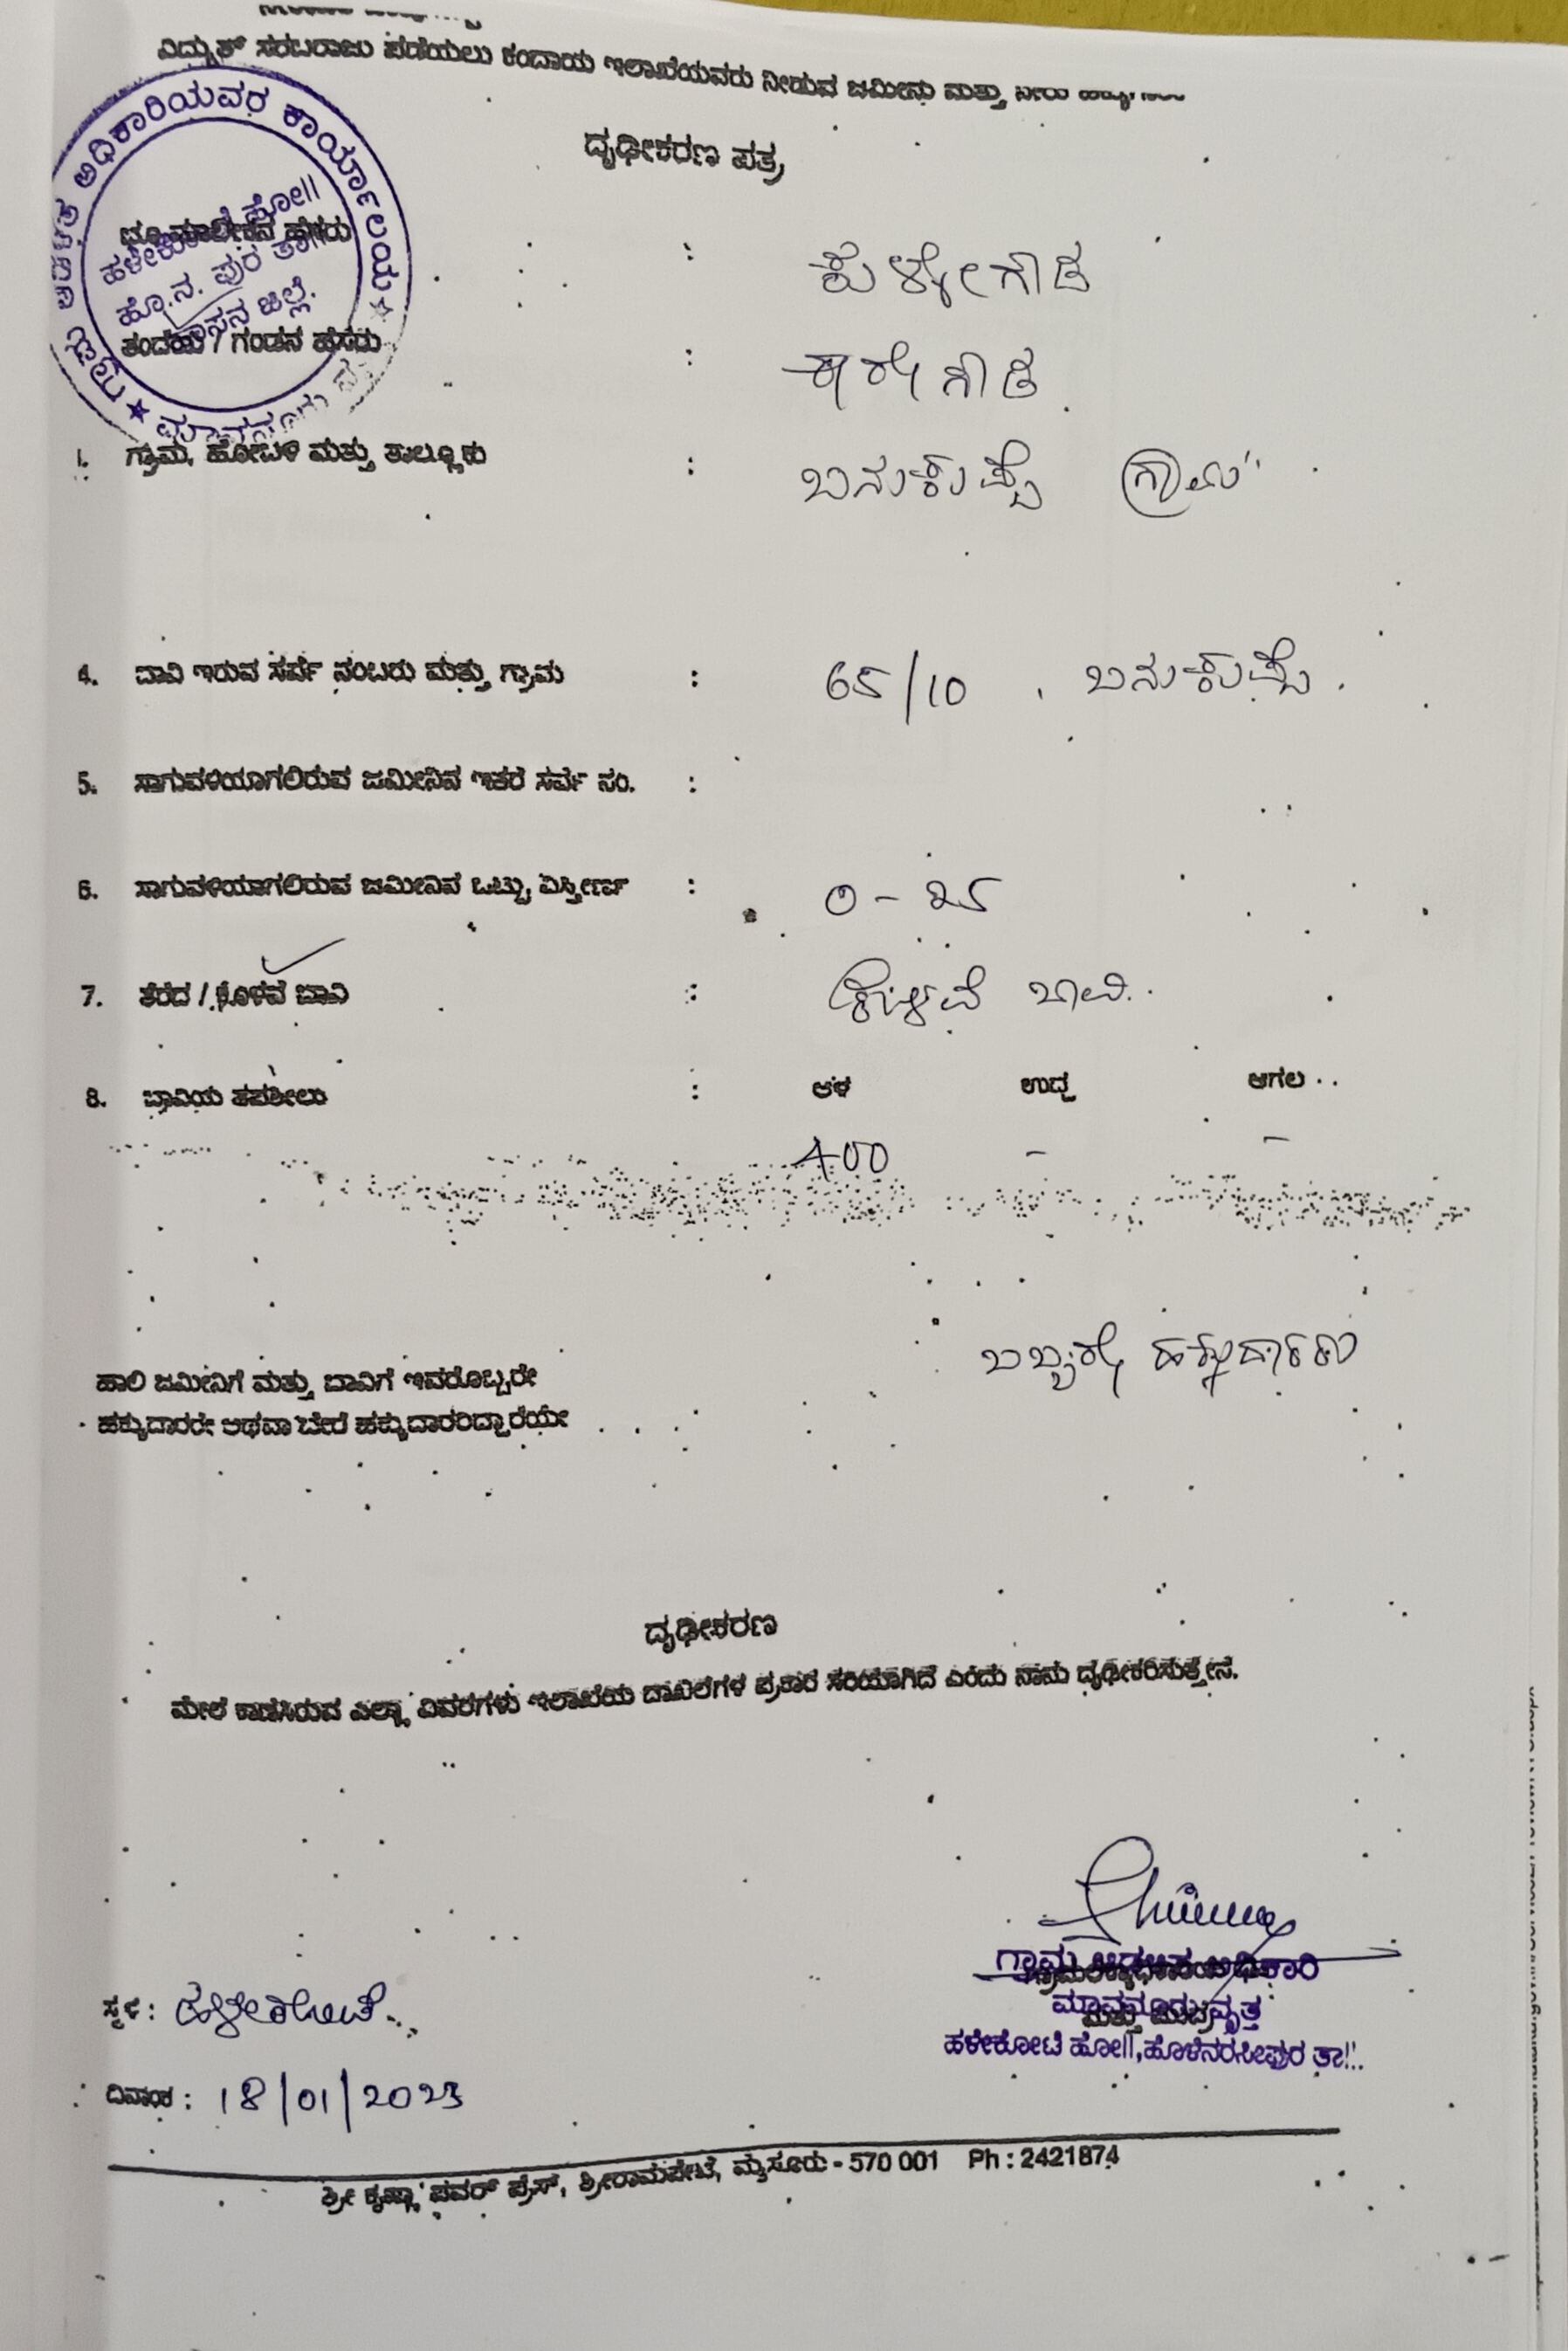 ವಿದ್ಯುತ್ ಸರಬರಾಜು ಪಡೆಯಲು ಕಂದಾಯ ಇಲಾಖೆಯವರು ನೀಡುವ ಜಮೀನು ಮತ್ತು ನೀರು
ದೃಢೀಕರಣ ಪತ್ರ
ಅಧಿಕಾರಿಯವರ ಕಾರ್ಯಾಲಯ
ಹೊ.ನ. ಪುರ ತಾ||
ಭೂ ಮಾಲೀಕನ ಹೆಸರು :
ತಂದೆಯ / ಗಂಡನ ಹೆಸರು :
1. ಗ್ರಾಮ, ಹೋಬಳಿ ಮತ್ತು ತಾಲ್ಲೂಕು : ಬನುಕುಪ್ಪೆ ಗ್ರಾಮ
4. ಬಾವಿ ಇರುವ ಸರ್ವೆ ನಂಬರು ಮತ್ತು ಗ್ರಾಮ : 65/10 . ಬನುಕುಪ್ಪೆ .
5. ಸಾಗುವಳಿಯಾಗಲಿರುವ ಜಮೀನಿನ ಇತರೆ ಸರ್ವೆ ನಂ. :
6. ಸಾಗುವಳಿಯಾಗಲಿರುವ ಜಮೀನಿನ ಒಟ್ಟು ವಿಸ್ತೀರ್ಣ : 0 - 25
7. ತೆರೆದ / ಕೊಳವೆ ಬಾವಿ : ಕೊಳವೆ ಬಾವಿ.
8. ಬಾವಿಯ ತಪಶೀಲು : ಆಳ ಉದ್ದ ಅಗಲ
400 - -
ಹಾಲಿ ಜಮೀನಿಗೆ ಮತ್ತು ಬಾವಿಗೆ ಇವರೊಬ್ಬರೇ
ಹಕ್ಕುದಾರರೇ ಅಥವಾ ಬೇರೆ ಹಕ್ಕುದಾರರಿದ್ದಾರೆಯೇ
ಒಬ್ಬರೇ ಹಕ್ಕುದಾರರು
ದೃಢೀಕರಣ
ಮೇಲೆ ಕಾಣಿಸಿರುವ ಎಲ್ಲಾ ವಿವರಗಳು ಇಲಾಖೆಯ ದಾಖಲೆಗಳ ಪ್ರಕಾರ ಸರಿಯಾಗಿದೆ ಎಂದು ನಾನು ದೃಢೀಕರಿಸುತ್ತೇನೆ.
ಗ್ರಾಮ ಆಡಳಿತ ಅಧಿಕಾರಿ
ಮಾವನೂರು ವೃತ್ತ
ಹಳೇಕೋಟೆ ಹೋ||, ಹೊಳೆನರಸೀಪುರ ತಾ||.
ಸ್ಥಳ : ಹಳೇಕೋಟೆ
ದಿನಾಂಕ : 18/01/2023
ಶ್ರೀ ಕೃಷ್ಣಾ ಪವರ್ ಪ್ರೆಸ್, ಶ್ರೀರಾಮಪೇಟೆ, ಮೈಸೂರು - 570 001 Ph : 2421874